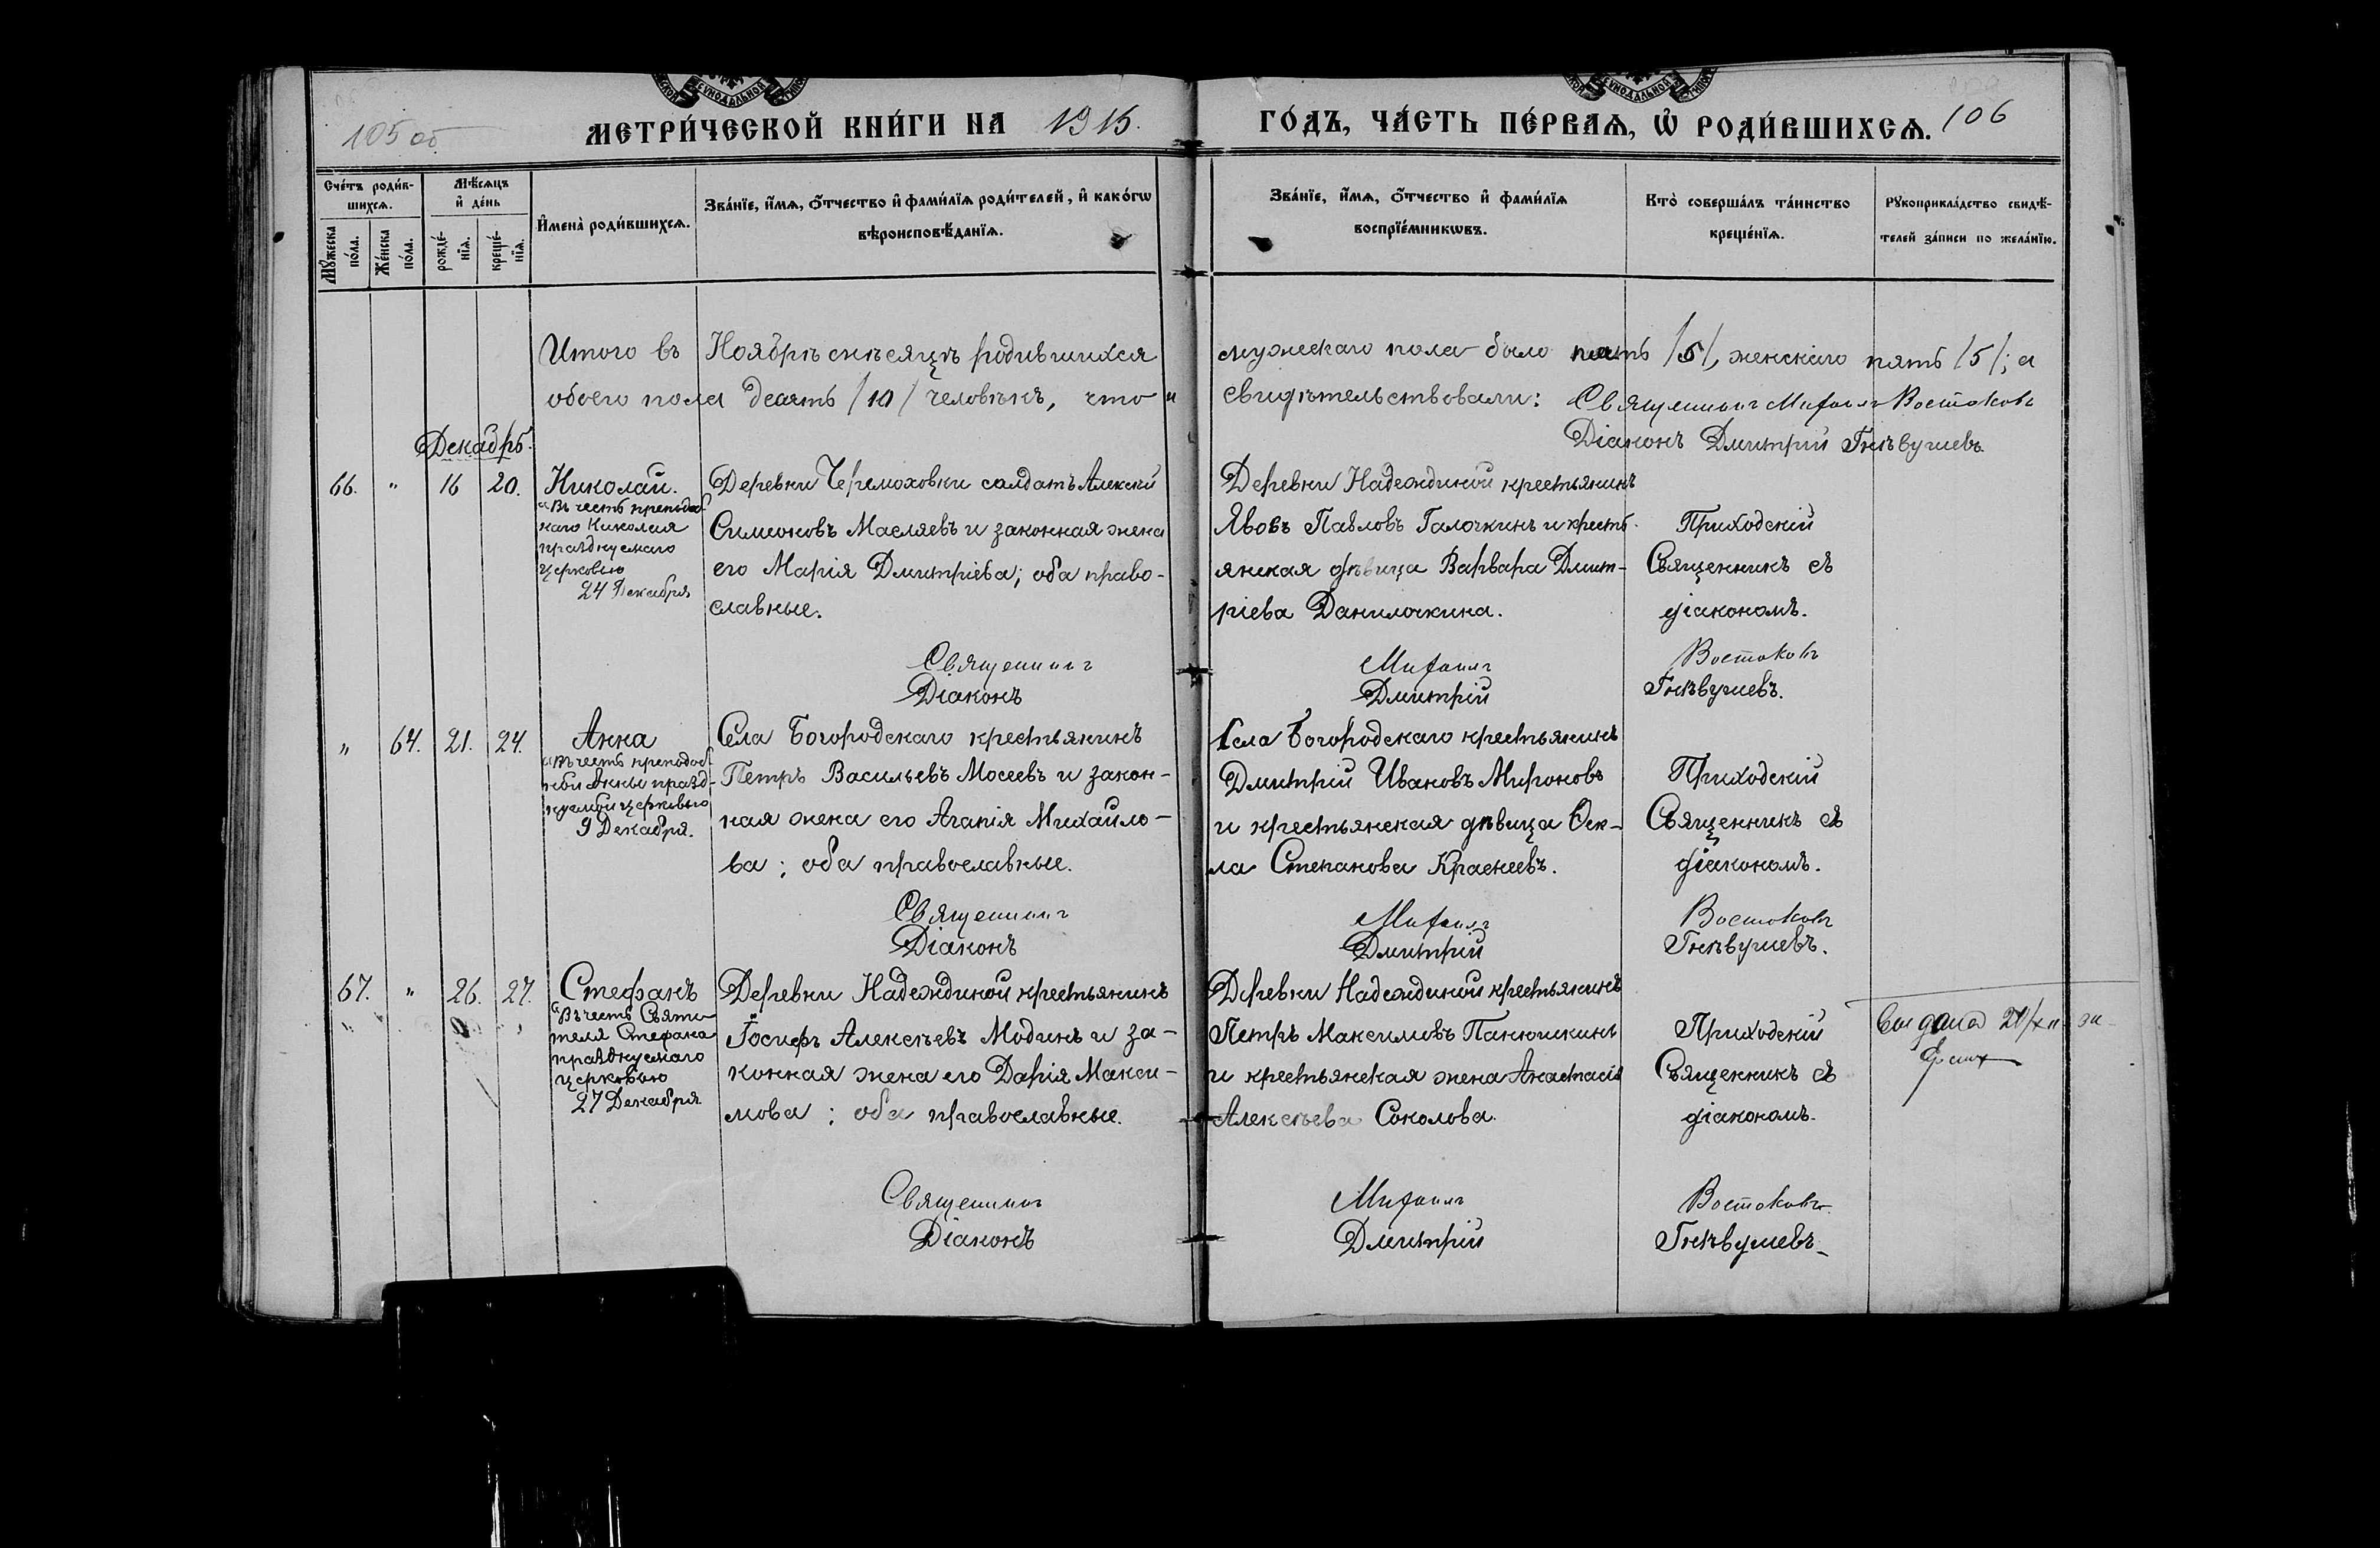 105 об
МЕТРИ́ЧЕСКОЙ КНИ́ГИ НА 1915.
ГО́ДЪ, ЧА́СТЬ ПЕ́РВАѦ, Ѡ҆ РОДИ́ВШИХСѦ.
106
Сче́тъ роди́в-
шихсѧ.
Мꙋ́жеска
по́ла.
Же́нска
по́ла.
Мѣ́сѧцъ
и҆ де́нь
рожде́-
нїѧ.
креще́-
нїѧ.
И҆мена̀ роди́вшихсѧ.
Зва́нїе, и҆́мѧ, ѻ҆́тчество и҆ фами́лїѧ роди́телей, и҆ како́гѡ
вѣроисповѣ́данїѧ.
Зва́нїе, и҆́мѧ, ѻ҆́тчество и҆ фами́лїѧ
воспрїе́мникѡвъ.
Кто̀ соверша́лъ та́инство
креще́нїѧ.
Рꙋкоприкла́дство свидѣ́-
телей за́писи по жела́нїю.
Итого въ Ноябрѣ мѣсяцѣ родившихся мужескаго пола было пять /5/, женскаго пять /5/; а
обоего пола десять /10/ человѣкъ, что и свидѣтельствовали: Священникъ Михаилъ Востоковъ
Діаконъ Дмитрій Гнѣвушевъ.
Декабрь.
66. " 16 20. Николай.
Въ честь преподоб-
наго Николая
празднуемаго
церковью
24 Декабря
Деревни Черемоховки солдатъ Алексѣй
Симеоновъ Масляевъ и законная жена
его Марія Дмитріева; оба право-
славные.
Деревни Надеждиной крестьянинъ
Яковъ Павловъ Галочкинъ и кресть-
янская дѣвица Варвара Дмит-
ріева Данилочкина.
Приходскій
Священникъ съ
діакономъ.
Священникъ Михаилъ Востоковъ
Діаконъ Дмитрій Гнѣвушевъ.
" 64. 21. 24. Анна
Въ честь преподоб-
ной Анны празд-
нуемой церковью
9 Декабря.
Села Богородскаго крестьянинъ
Петръ Васильевъ Мосеевъ и закон-
ная жена его Агапія Михайло-
ва; оба православные.
Села Богородскаго крестьянинъ
Дмитрій Ивановъ Мироновъ
и крестьянская дѣвица Ѳек-
ла Степанова Краснеевъ.
Приходскій
Священникъ съ
діакономъ.
Священникъ Михаилъ Востоковъ
Діаконъ Дмитрій Гнѣвушевъ.
67. " 26. 27. Стефанъ
Въ честь Святи-
теля Стефана
празднуемаго
церковью
27 Декабря
Деревни Надеждиной крестьянинъ
Іосифъ Алексѣевъ Модинъ и за-
конная жена его Дарія Макси-
мова; оба православные.
Деревни Надеждиной крестьянинъ
Петръ Максимовъ Панюшкинъ
и крестьянская жена Анастасія
Алексѣева Соколова.
Приходскій
Священникъ съ
діакономъ.
Священникъ Михаилъ Востоковъ
Діаконъ Дмитрій Гнѣвушевъ